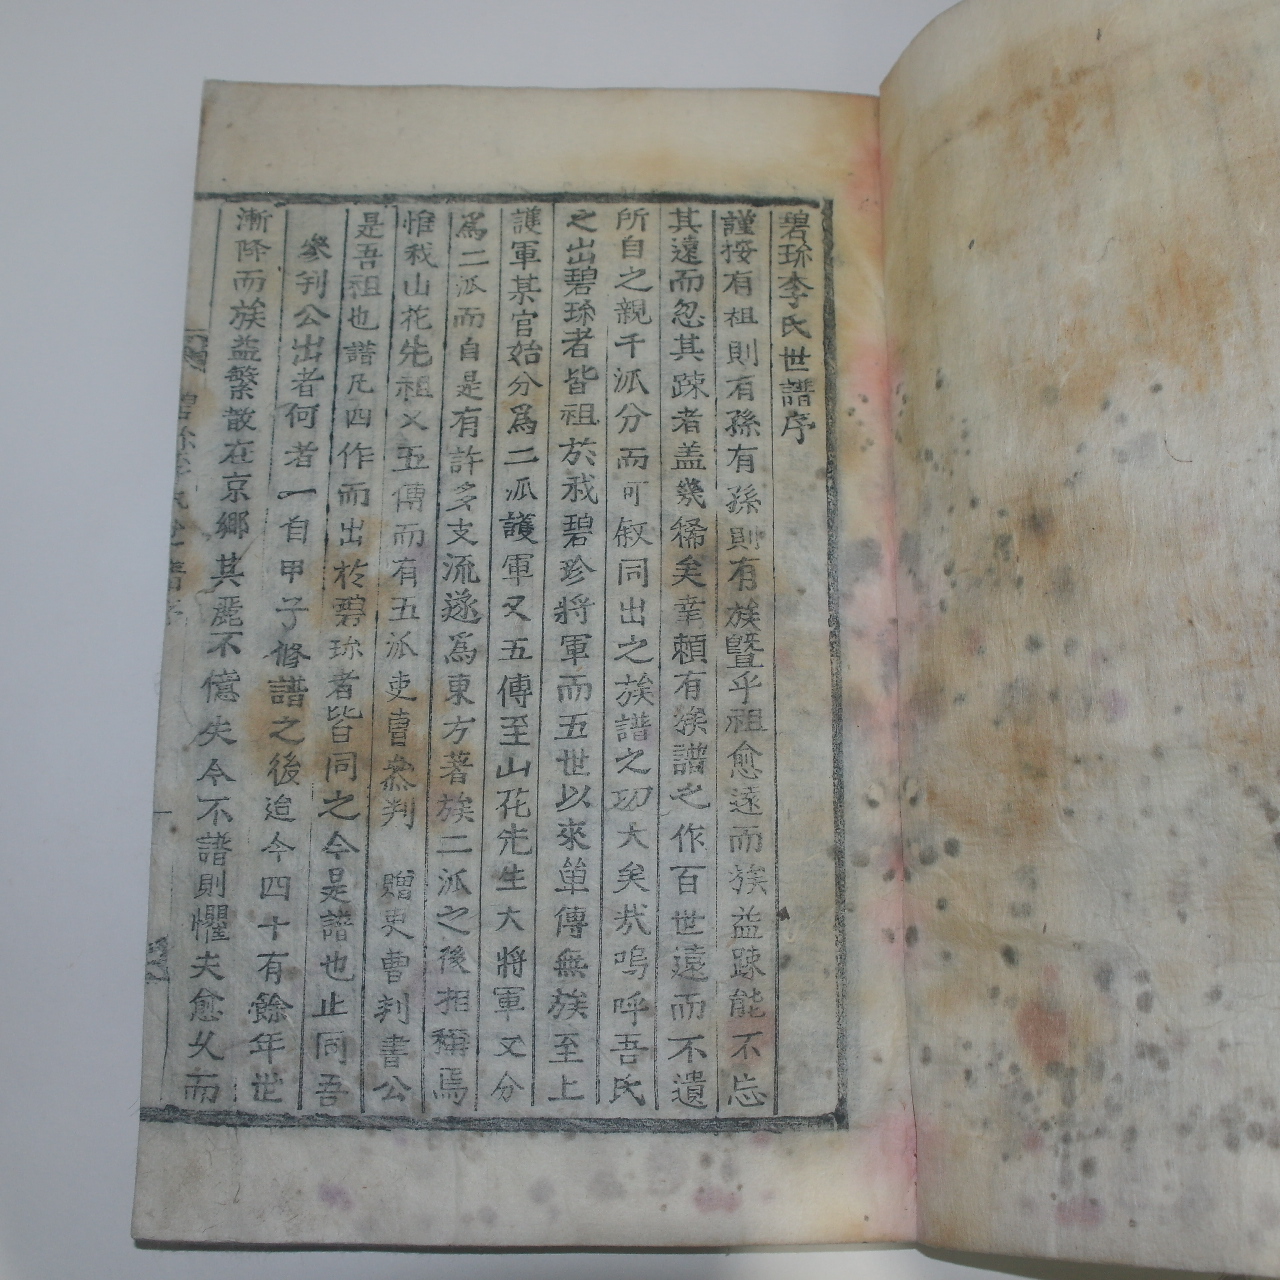 碧珎李氏世譜序
謹按有祖則有孫有孫則有族曁乎祖愈遠而族益踈能不忘
其遠而忽其踈者盖幾稀矣幸頼有族譜之作百世遠而不遺
所自之親千泒分而可叙同出之族譜之功大矣㢤嗚呼吾氏
之出碧珎者皆祖於我碧珍將軍而五世以來單傳無族至上
護軍某官始分爲二泒護軍又五傳至山花先生大將軍又分
爲二泒而自是有許多支流遂爲東方著族二泒之後相稱焉
惟我山花先祖又五傳而有五泒吏曹叅判 贈吏曹判書公
是吾祖也譜凡四作而出於碧珎者皆同之今是譜也止同吾
叅判公出者何者一自甲子修譜之後迨今四十有餘年世
漸降而族益繁散在京鄉其麗不億失今不譜則懼夫愈久而
碧珎李氏世譜序